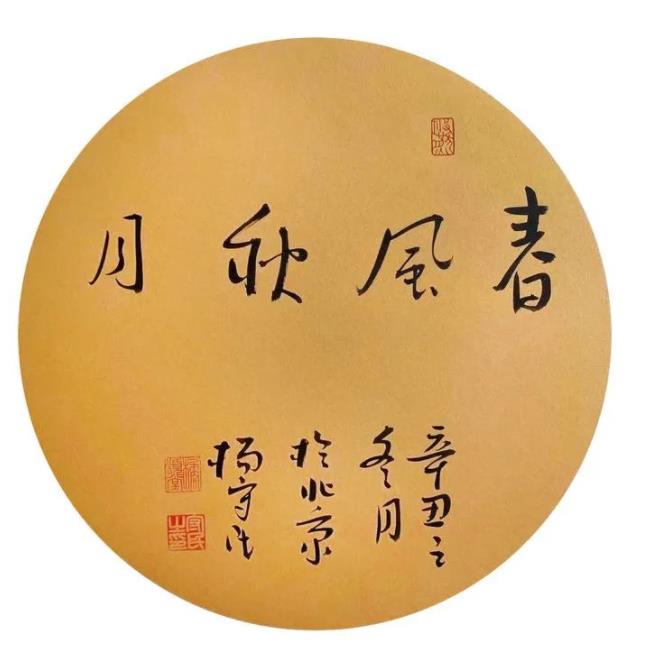 春風秋月
辛丑之
冬月
於北京
楊守民